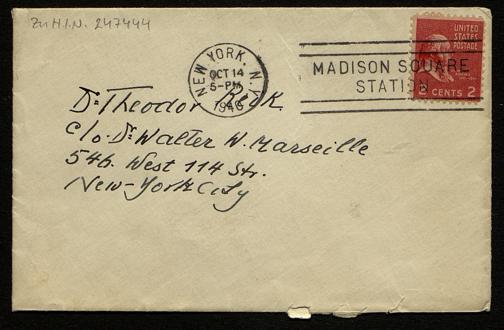 Zu H.I.N. 247444
NEW YORK, N.Y.
OCT 14
5-PM
1940
MADISON SQUARE
STATION
UNITED
STATES
POSTAGE
2 CENTS 2
Dr. Theodor Reik
c/o. Dr. Walter W. Marseille
546. West 114 Str.
New-York City